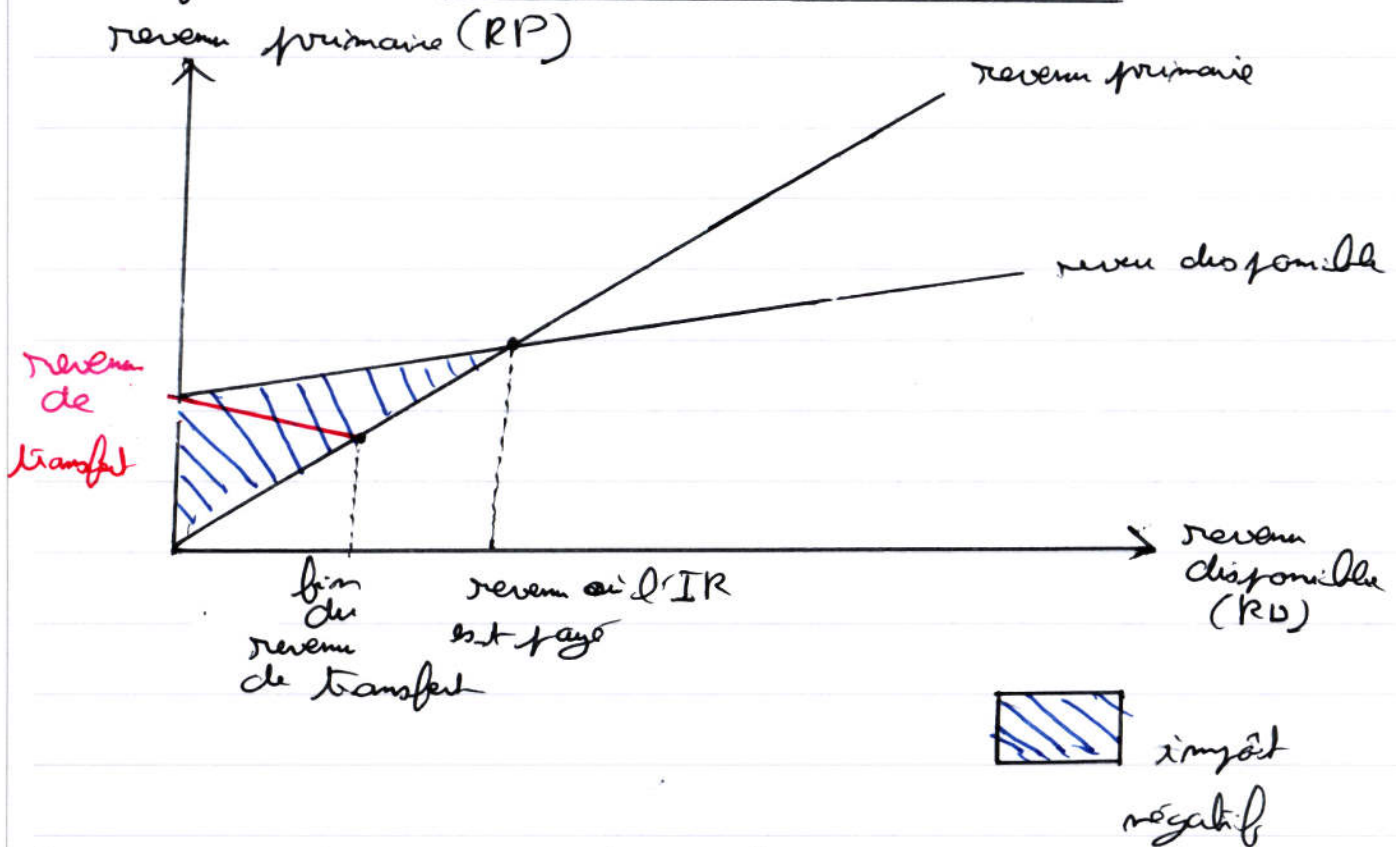 revenu primaire (RP)
revenu primaire
reveu disponible
revenu
de
transfert
revenu
disponible
(RD)
fin
du
revenu
de transfert
revenu où l'IR
est payé
impôt
négatif